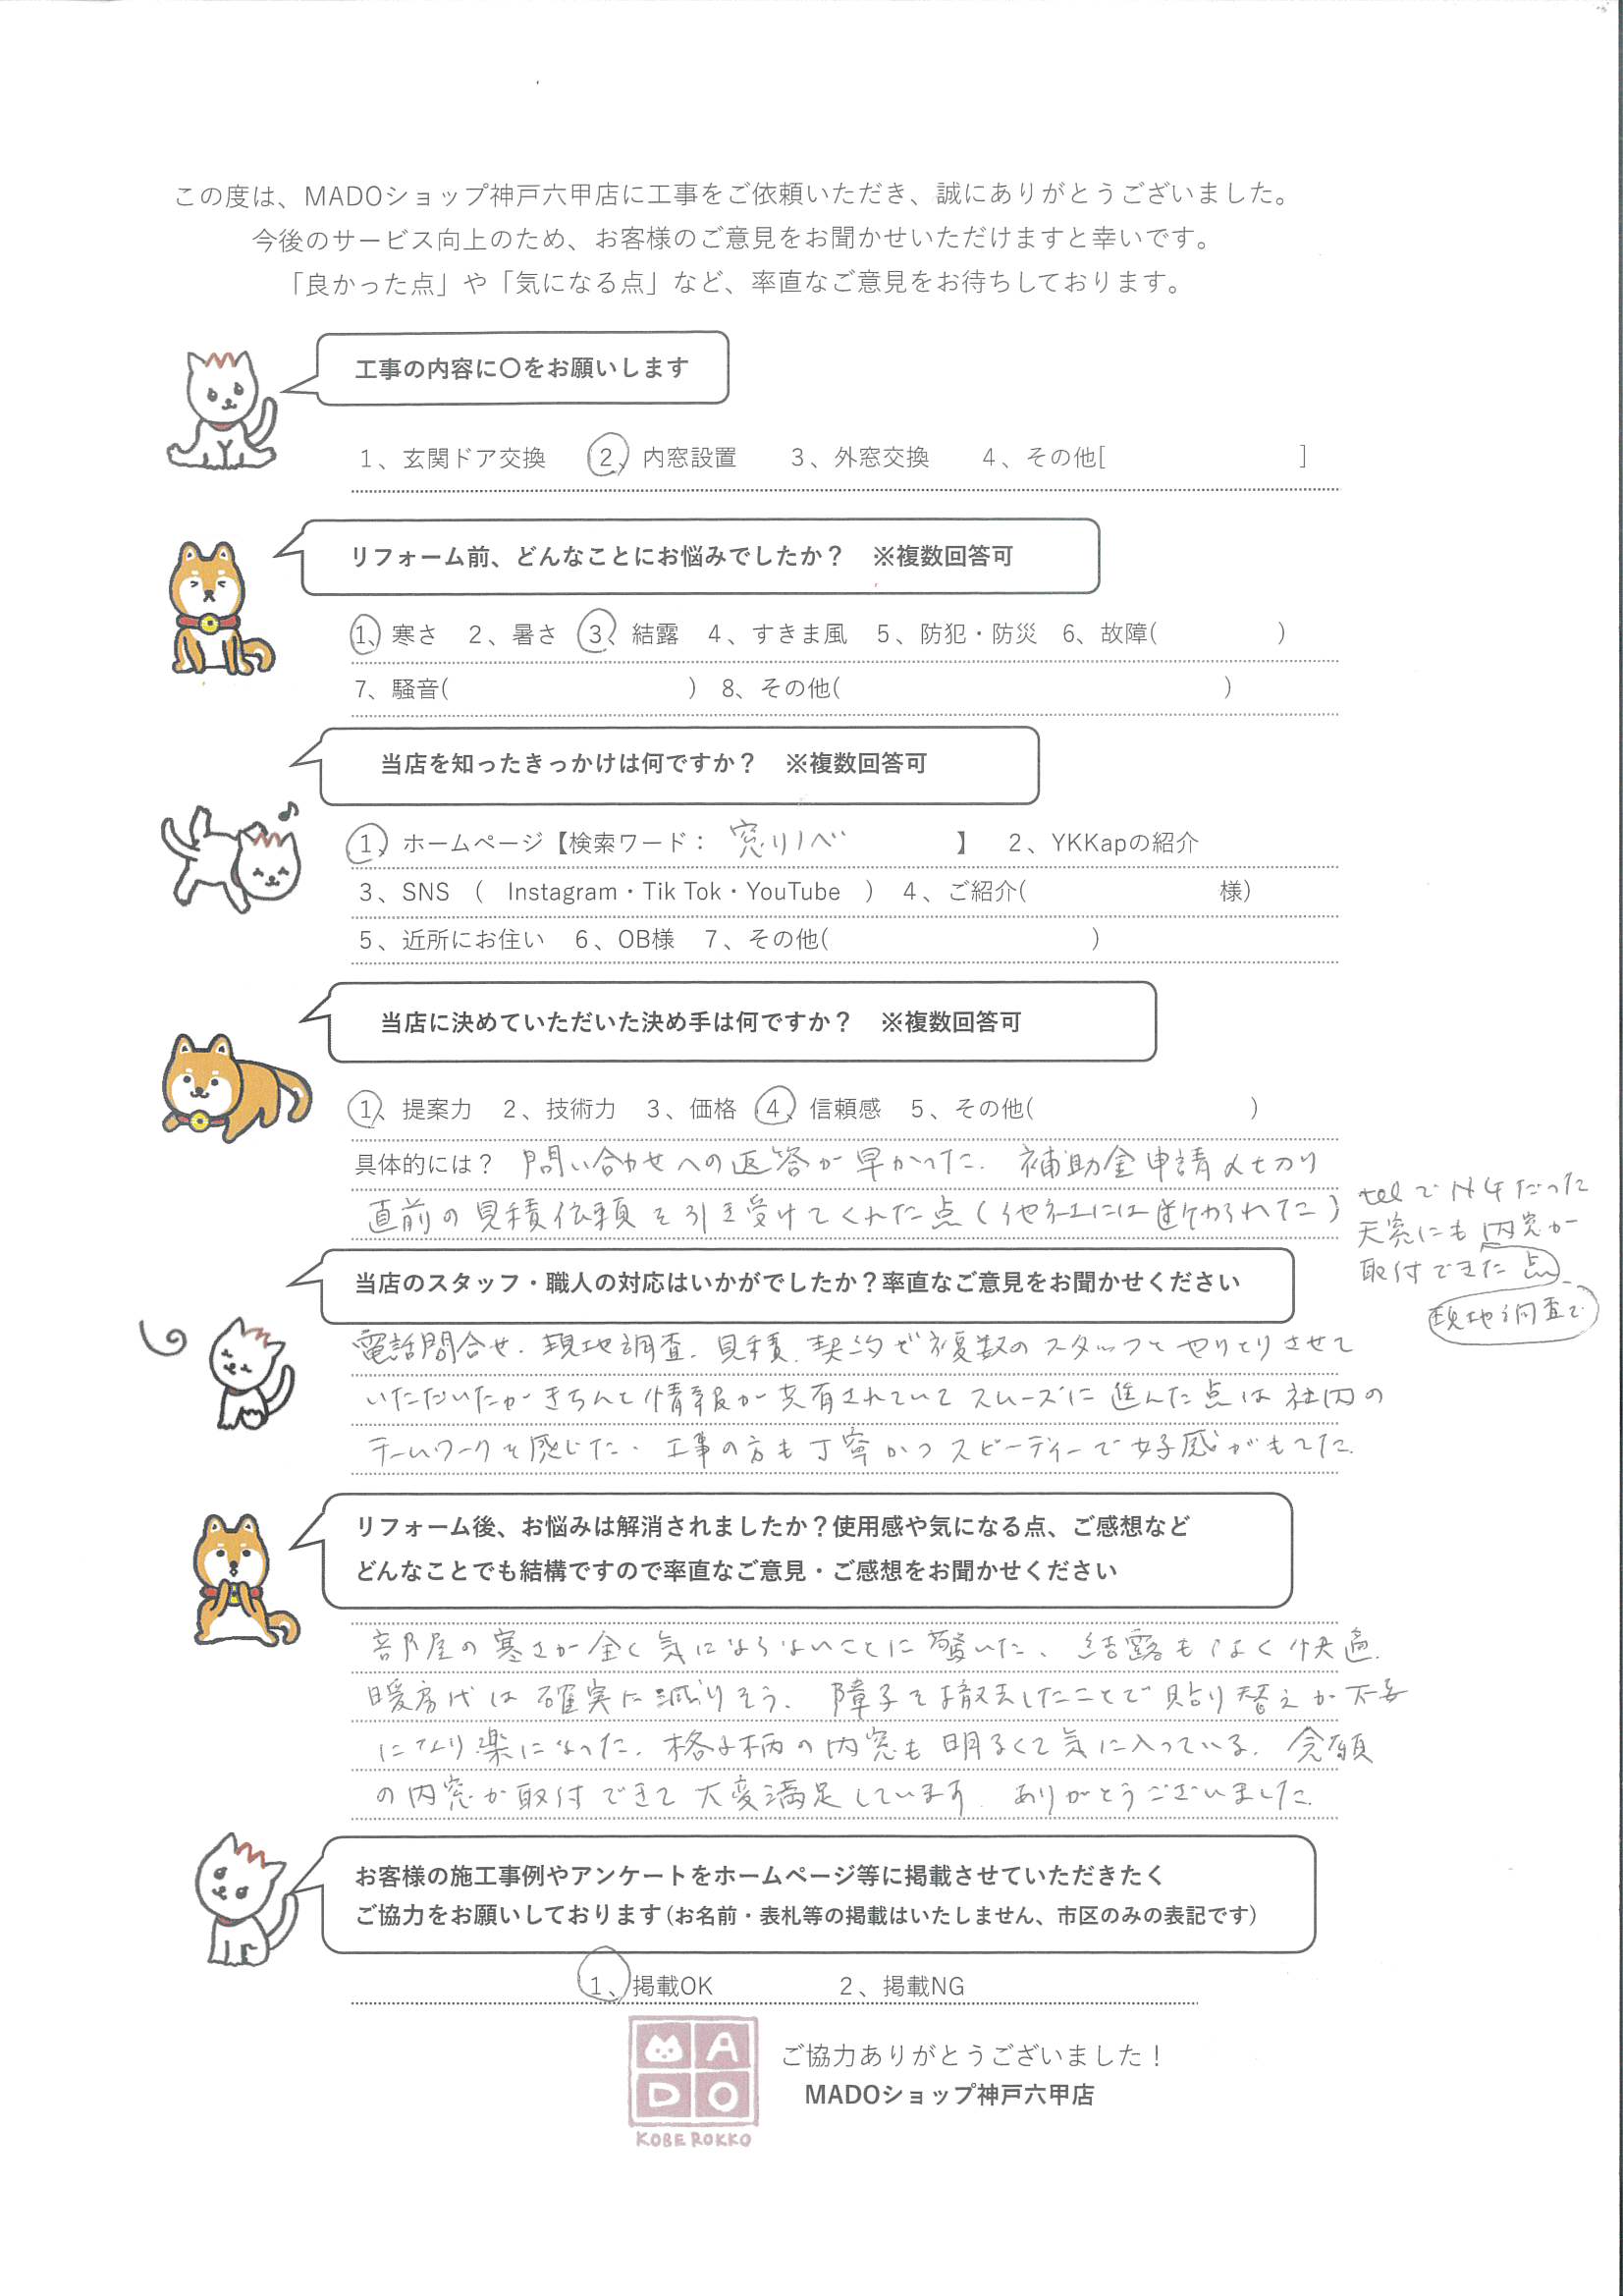 この度は、MADOショップ神戸六甲店に工事をご依頼いただき、誠にありがとうございました。
今後のサービス向上のため、お客様のご意見をお聞かせいただけますと幸いです。
「良かった点」や「気になる点」など、率直なご意見をお待ちしております。
工事の内容に〇をお願いします
1、玄関ドア交換 2、内窓設置 3、外窓交換 4、その他[ ]
リフォーム前、どんなことにお悩みでしたか？ ※複数回答可
1、寒さ 2、暑さ 3、結露 4、すきま風 5、防犯・防災 6、故障( )
7、騒音( ) 8、その他( )
当店を知ったきっかけは何ですか？ ※複数回答可
1、ホームページ【検索ワード： 窓リノベ 】 2、YKKapの紹介
3、SNS ( Instagram・Tik Tok・YouTube ) 4、ご紹介( 様)
5、近所にお住い 6、OB様 7、その他( )
当店に決めていただいた決め手は何ですか？ ※複数回答可
1、提案力 2、技術力 3、価格 4、信頼感 5、その他( )
具体的には？ 問い合わせへの返答が早かった. 補助金申請〆切り
直前の見積依頼を引き受けてくれた点(他社には断わられた)
telでNGだった
天窓にも内窓が
取付できた点.
現地調査で
当店のスタッフ・職人の対応はいかがでしたか？率直なご意見をお聞かせください
電話問合せ. 現地調査. 見積. 契約で複数のスタッフとやりとりさせて
いただいたがきちんと情報が共有されていてスムーズに進んだ点は社内の
チームワークを感じた. 工事の方も丁寧かつスピーディーで好感がもてた.
リフォーム後、お悩みは解消されましたか？使用感や気になる点、ご感想など
どんなことでも結構ですので率直なご意見・ご感想をお聞かせください
部屋の寒さが全く気にならないことに驚いた、結露もなく快適.
暖房代は確実に減りそう. 障子を撤去したことで貼り替えが不要
になり楽になった. 格子柄の内窓も明るくて気に入っている. 念願
の内窓が取付できて大変満足しています. ありがとうございました.
お客様の施工事例やアンケートをホームページ等に掲載させていただきたく
ご協力をお願いしております(お名前・表札等の掲載はいたしません、市区のみの表記です)
1、掲載OK 2、掲載NG
A
DO
KOBE ROKKO
ご協力ありがとうございました！
MADOショップ神戸六甲店